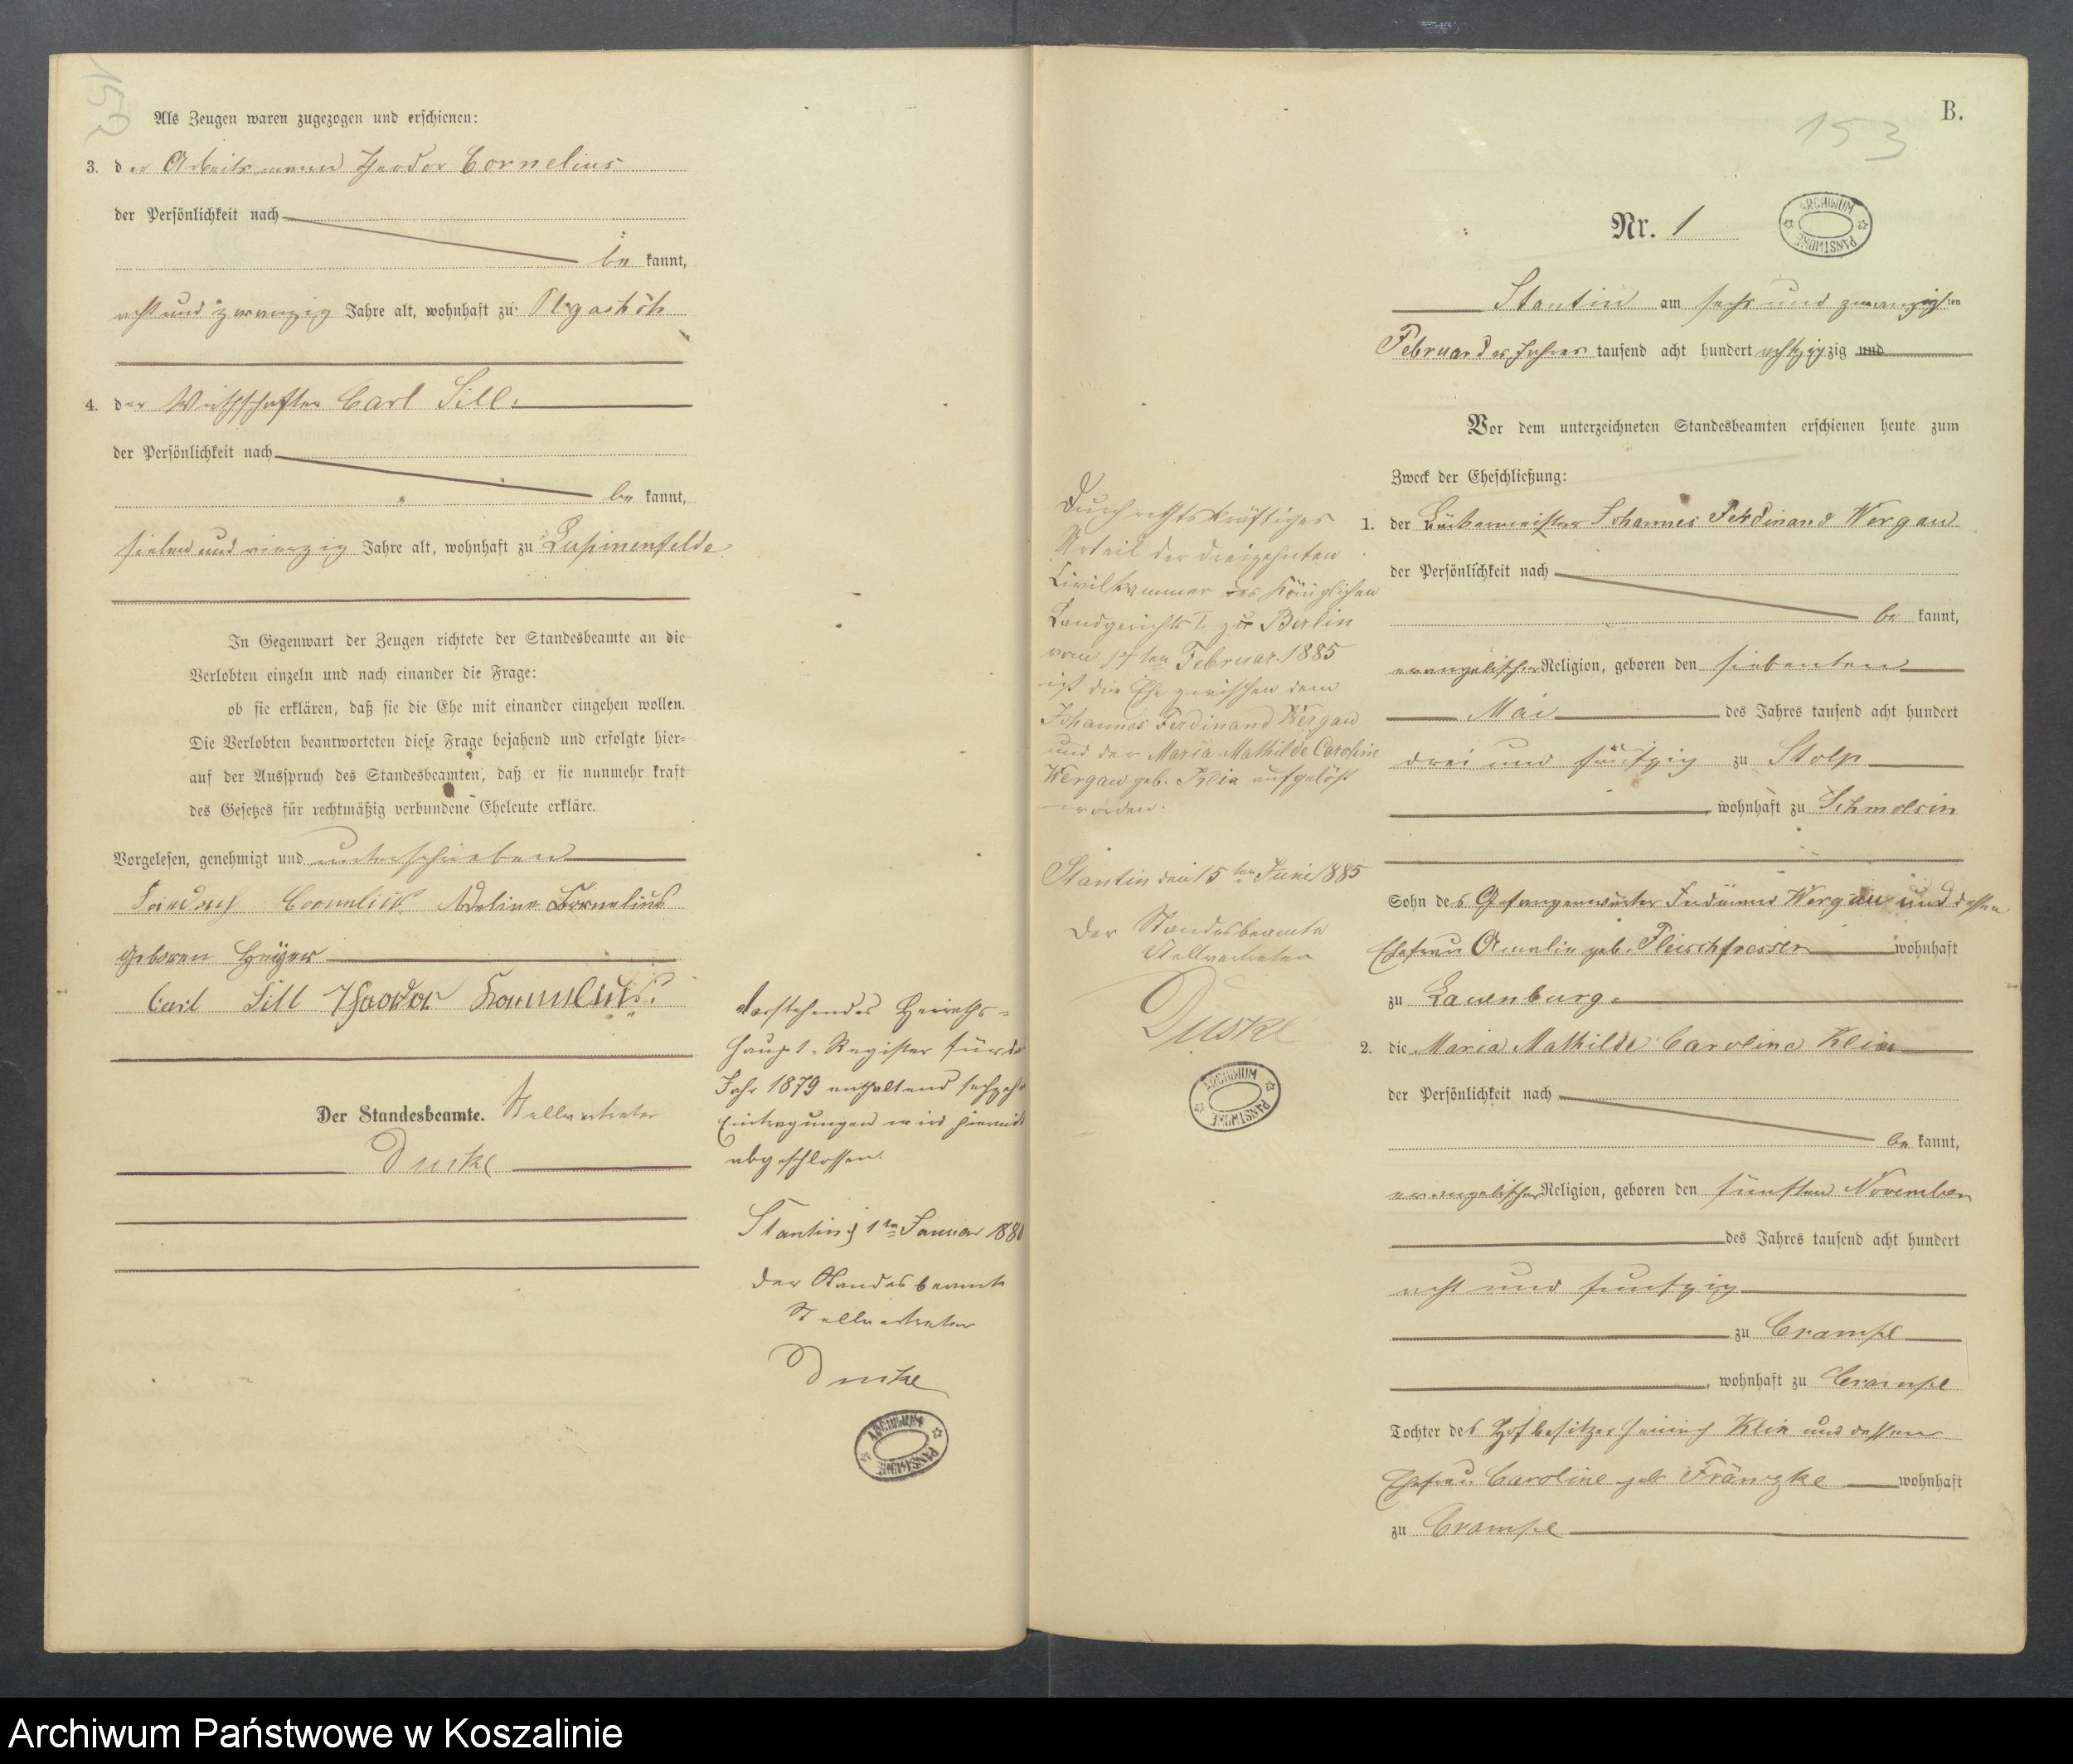 152
Als Zeugen waren zugezogen und erschienen:
3. der Arbeitsmann Theodor Cornelius
der Persönlichkeit nach
be kannt,
acht und zwanzig Jahre alt, wohnhaft zu
4. der Wirthschafter Carl Sill.
der Persönlichkeit nach
be kannt,
sieben und vierzig Jahre alt, wohnhaft zu Lupinenfelde
In Gegenwart der Zeugen richtete der Standesbeamte an die
Verlobten einzeln und nach einander die Frage:
ob sie erklären, daß sie die Ehe mit einander eingehen wollen.
Die Verlobten beantworteten diese Frage bejahend und erfolgte hier-
auf der Ausspruch des Standesbeamten, daß er sie nunmehr kraft
des Gesetzes für rechtmäßig verbundene Eheleute erkläre.
Vorgelesen, genehmigt und unterschrieben
Friedrich Cornelius Adeline Cornelius
geboren
Carl Sill Theodor Cornelius.
Der Standesbeamte. Stellvertreter
Duske
Vorstehendes Heiraths-
Haupt-Register für das
Jahr 1879 enthaltend sechzehn
Eintragungen wird hiermit
abgeschlossen.
Stantin, 1ten Januar 1880
Der Standesbeamte
Stellvertreter
Duske
ARCHIWUM PAŃSTWOWE
B.
153
Nr. 1
ARCHIWUM PAŃSTWOWE
Stantin am sechs und zwanzigsten
Februar des Jahres tausend acht hundert achtzig zig und
Vor dem unterzeichneten Standesbeamten erschienen heute zum
Zweck der Eheschließung:
1. der Bäckermeister Johannes Ferdinand Wergau
der Persönlichkeit nach
be kannt,
evangelischer Religion, geboren den siebenten
Mai des Jahres tausend acht hundert
drei und fünfzig zu Stolp
, wohnhaft zu Schmolsin
Sohn des Gefangenwärter Ferdinand Wergau und dessen
Ehefrau Amalie geb. Fleischfresser wohnhaft
zu Lauenburg.
2. die Maria Mathilde Caroline Klein
der Persönlichkeit nach
be kannt,
evangelischer Religion, geboren den fünften November
des Jahres tausend acht hundert
acht und fünfzig
zu Crampe
, wohnhaft zu Crampe
Tochter des Hofbesitzer Heinrich Klein und dessen
Ehefrau Caroline geb. Fränzke wohnhaft
zu Crampe
Durch rechtskräftiges
Urteil der dreizehnten
Civilkammer des Königlichen
Landgerichts I. zu Berlin
vom Februar 1885
ist die Ehe zwischen dem
Johannes Ferdinand Wergau
und der Maria Mathilde Caroline
Wergau geb. Klein aufgelöst
worden.
Stantin den 15ten Juni 1885
Der Standesbeamte
Stellvertreter
Duske
ARCHIWUM PAŃSTWOWE
Archiwum Państwowe w Koszalinie